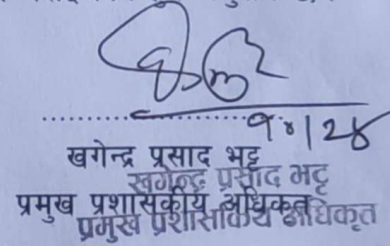 खगेन्द्र प्रसाद भट्ट
खगेन्द्र प्रसाद भट्ट
प्रमुख प्रशासकीय अधिकृत
प्रमुख प्रशासकिय अधिकृत